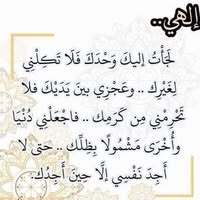 إلهي..
لَجَأْتُ إليكَ وَحْدَكَ فَلَا تَكِلْنِي
لِغَيْرِكَ .. وعَجْزِي بينَ يَدَيْكَ فلا
تَحْرِمْنِي مِن كَرَمِكَ .. فاجْعَلْنِي دُنْيَا
وأُخْرَى مَشْمُولًا بِظِلِّكَ .. حتى لا
أَجِدَ نَفْسِي إلَّا حِينَ أَجِدُكَ.